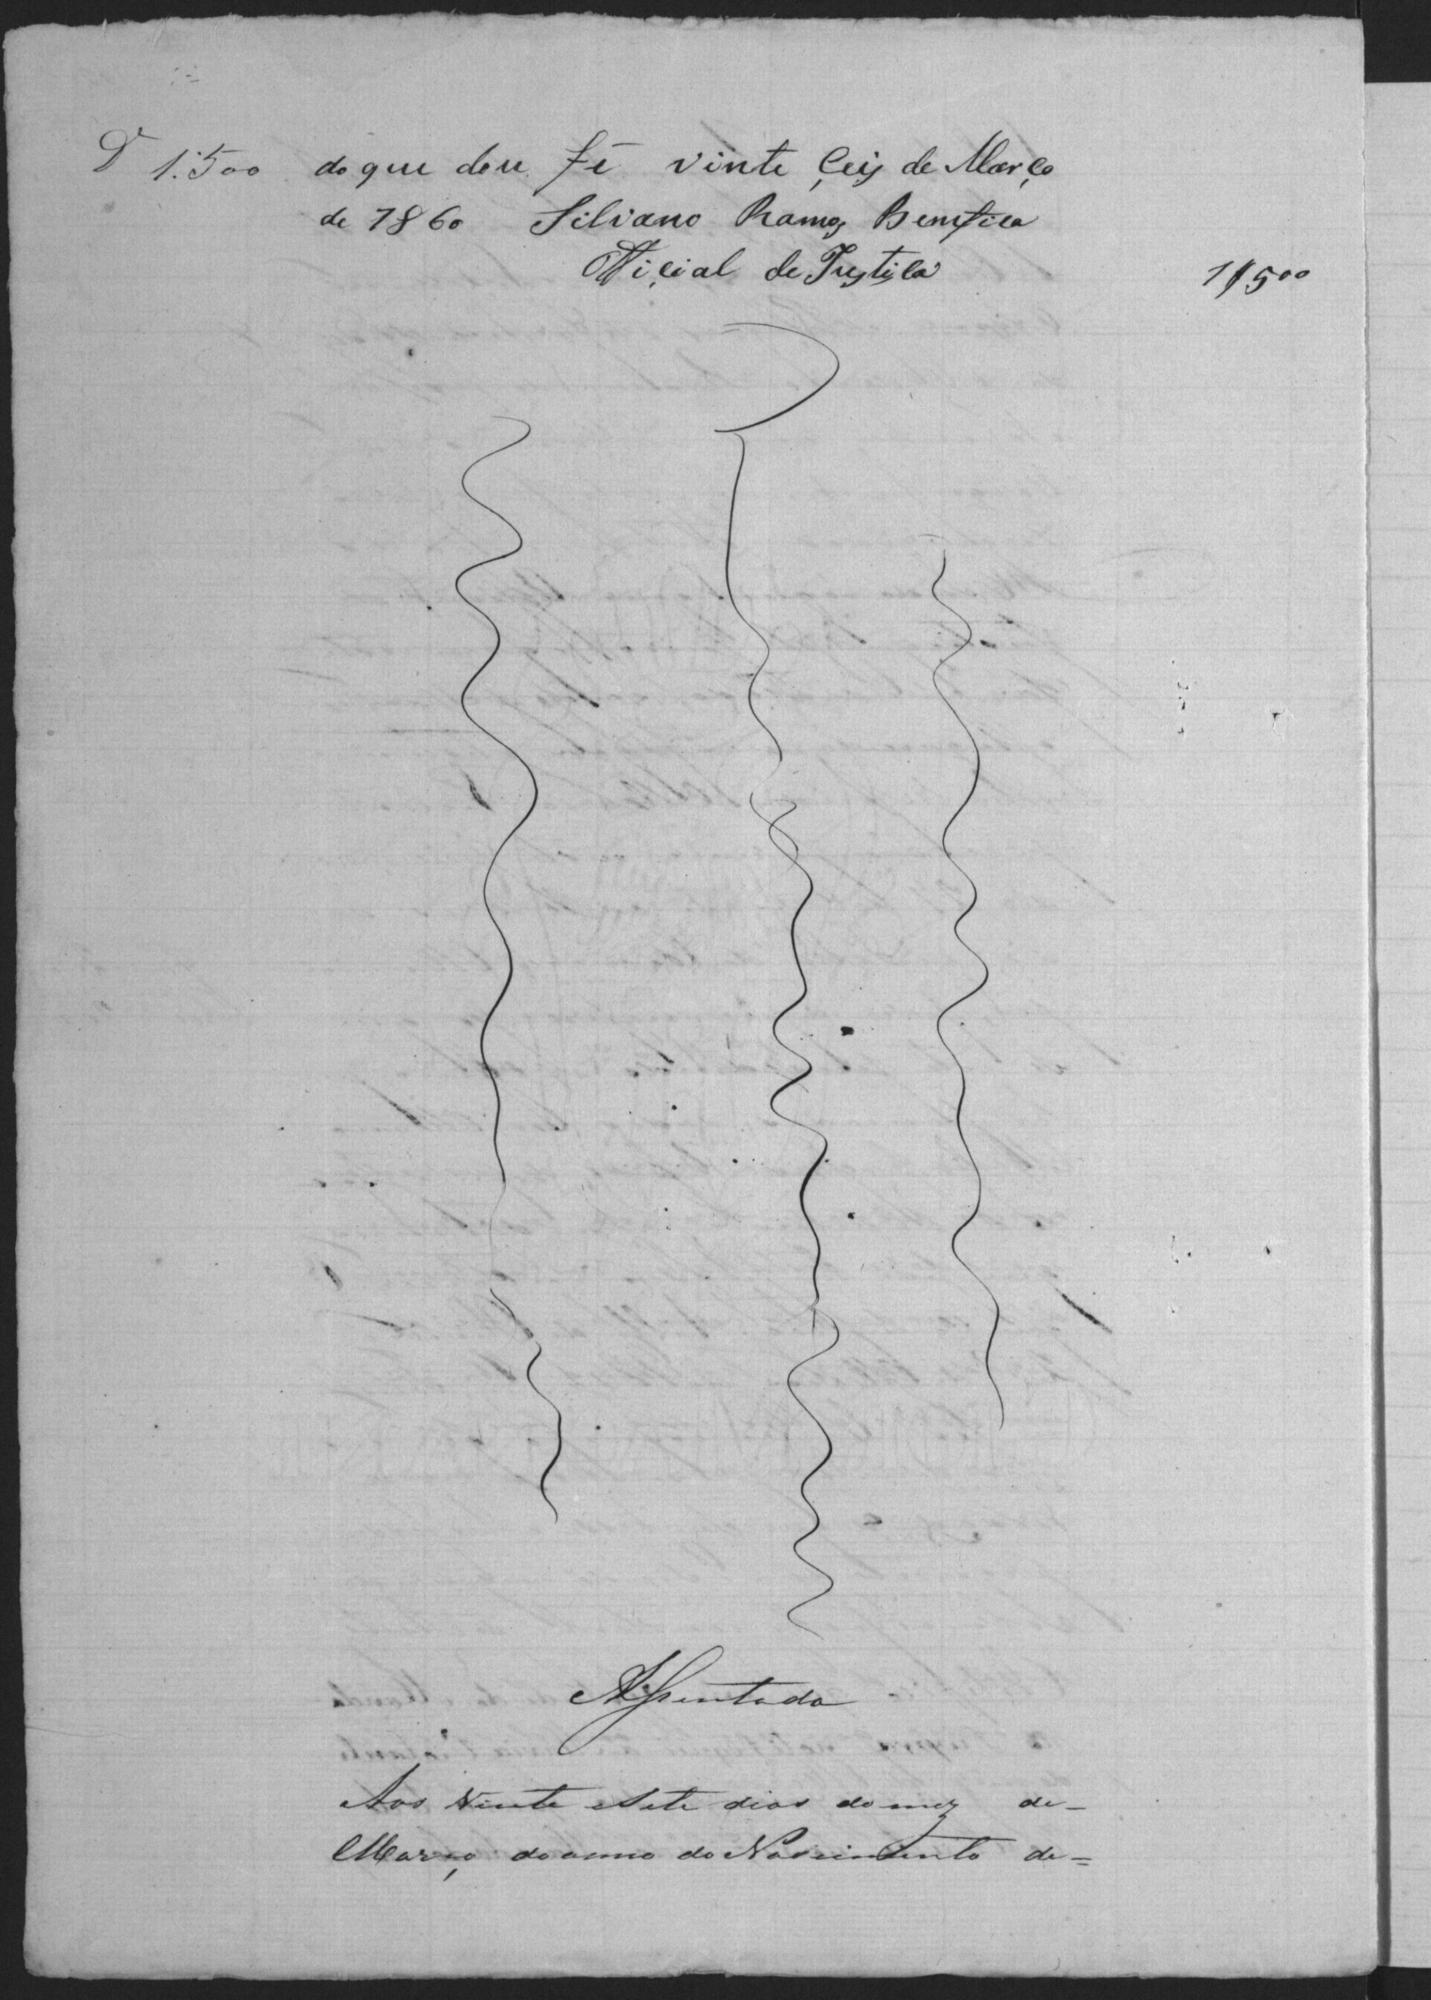 Dr 1.500 do que dou fé vinte çeis de Março
de 1860 Silvano Ramos Bemfica
Offiçial de Justiça 1$500
Assentada
Aos Vinte e Sete dias do mez de-
Março do anno do Nascimento de=